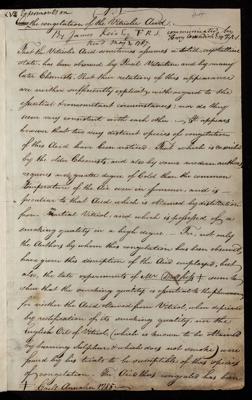 XVI Experiments on
the congelation of the Vitriolic Acid
By James Keir Esq F.R.S. communicated by
Read May 3 1787
That the Vitriolic Acid sometimes assumes a solid, crystalline
state, has been observed by and by many
later Chemists. But their relations of this appearance
are neither sufficiently explicit with regard to the
essential concomitant circumstances, nor do they
seem very consistent with each other. It appears
however that two very distinct species of congelation
of this Acid have been noticed. That which is described
by the older Chemists and also by some modern authors
requires no greater degree of Cold than the common
temperature of the Air even in summer, and is
peculiar to that Acid which is obtained by distillation
from Martial Vitriol, and which is possessed of a
smoking quality in a high degree. For not only
the Authors by whom this congelation has been observed
have given this description of the Acid employed, but
also, the late experiments of Mr seem to
shew that the smoking quality is essential to the phenomenon
for neither the Acid obtained from Vitriol, when deprived
by rectification of its smoking quality, nor the
English Oil of Vitriol (which is known to be obtained
by burning Sulphur & which does not smoke) were
found by his trials to be susceptible of this species
of congelation. The Acid thus congealed has been
Crell's Annalen 1785